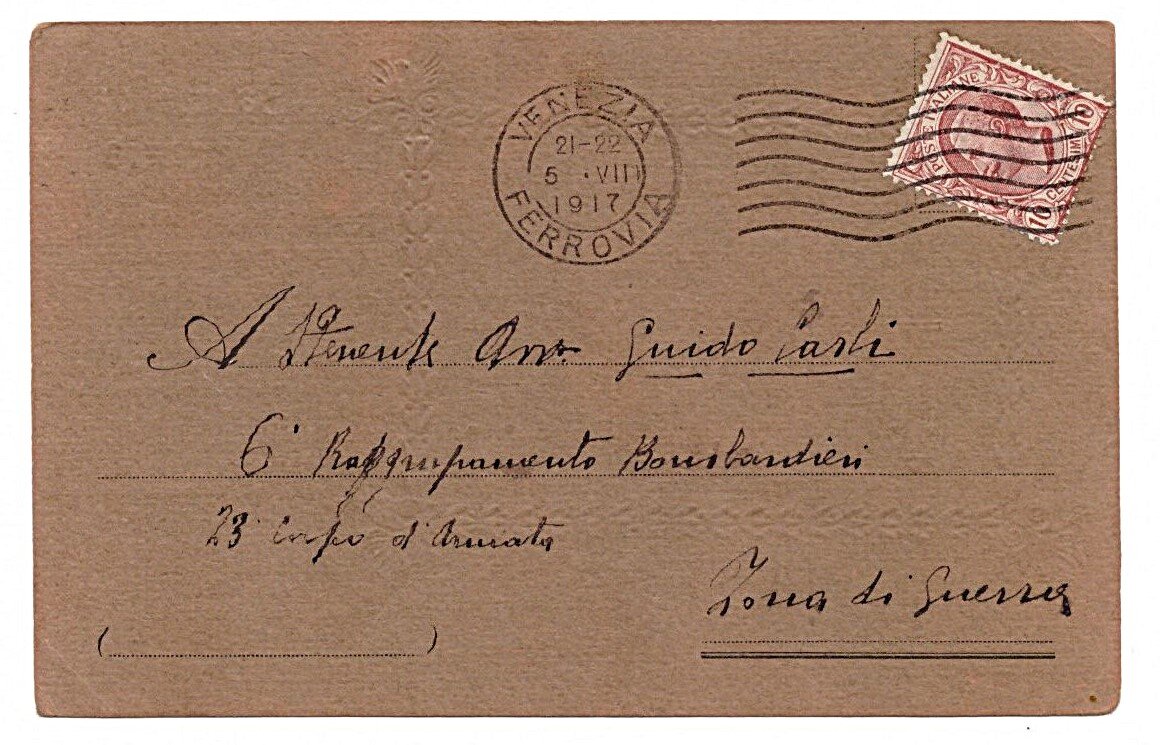 VENEZIA
21-22
5 · VII
1917
FERROVIA
POSTE ITALIANE
CENTESIMI
10
10
A Tenente Avv. Guido Carli
6° Raggrupamento Bombardieri
23° Corpo d'Armata
Zona di Guerra